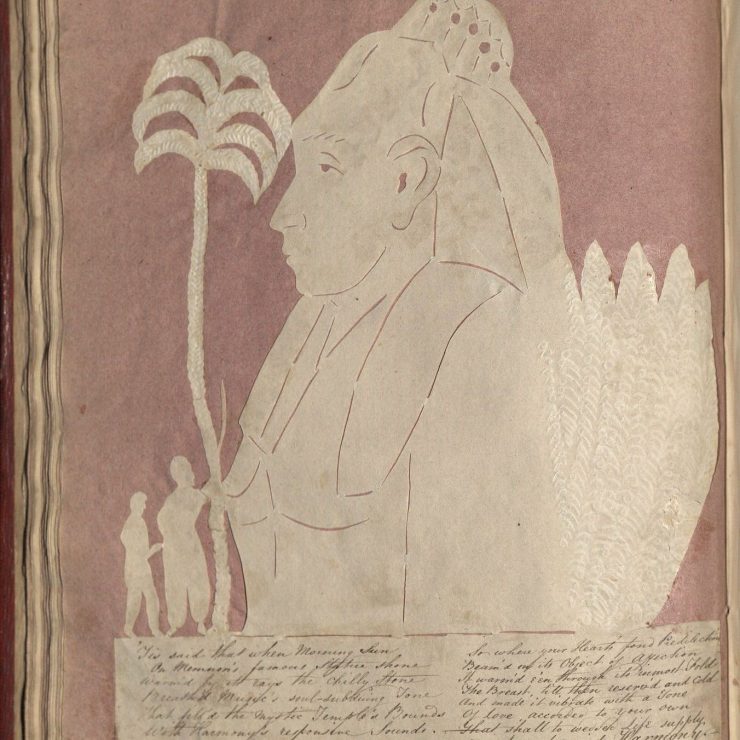 'Tis said that when Morning Sun
On Memnon's famous Statue shone
Warm'd by its rays the Chilly Stone
Breathed Music's soul-subduing Tone
That fill'd the Mystic Temple's Bounds
With Harmony's responsive Sounds.
So where your Heart's fond Predilection
Beam'd on its Object of Affection
It warm'd e'en through its inmost Fold
The Breast, till then reserved and Cold
And made it vibrate with a Tone
Of love accorded to your own
That shall to wedded Life supply,
Harmony